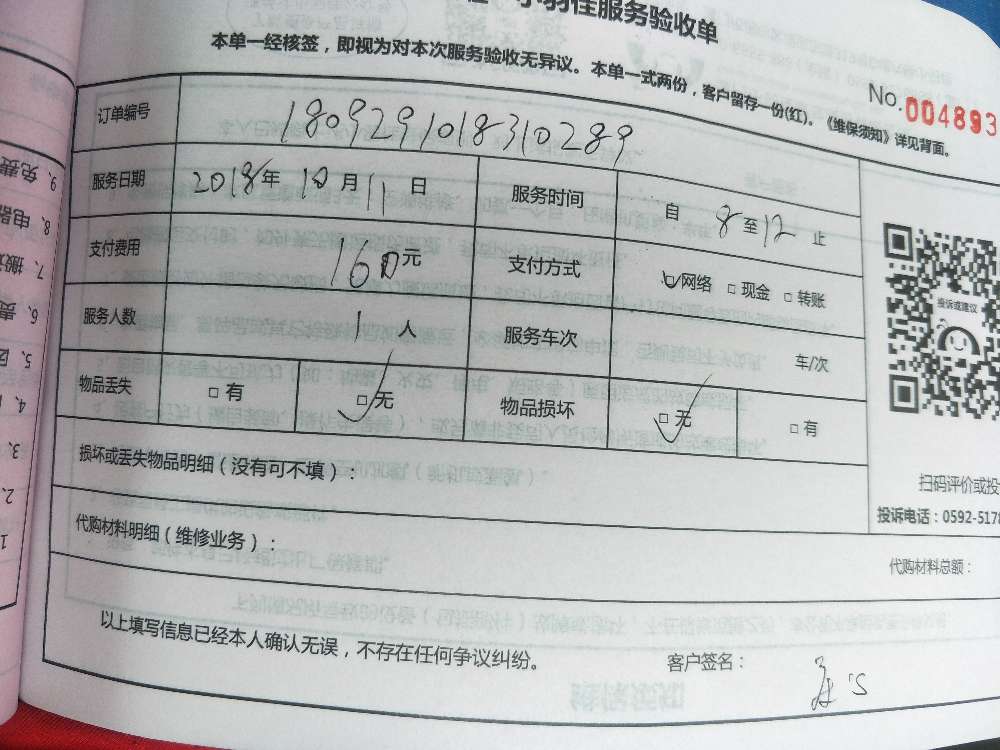 小羽佳服务验收单
本单一经核签，即视为对本次服务验收无异议。本单一式两份，客户留存一份(红)。《维保须知》详见背面。
No.004893
订单编号 1809291018310289
服务日期 2018年 10月 11日 服务时间 自 8 至 12 止
支付费用 160元 支付方式 □网络 □现金 □转账
服务人数 1人 服务车次 车/次
物品丢失 □有 □无 物品损坏 □无 □有
投诉或建议
损坏或丢失物品明细（没有可不填）：
扫码评价或投
投诉电话：0592-5178
代购材料明细（维修业务）：
代购材料总额：
以上填写信息已经本人确认无误，不存在任何争议纠纷。 客户签名：
9. 免费
8. 电器
7. 搬
6. 贵
5.
4.
3.
2.
1